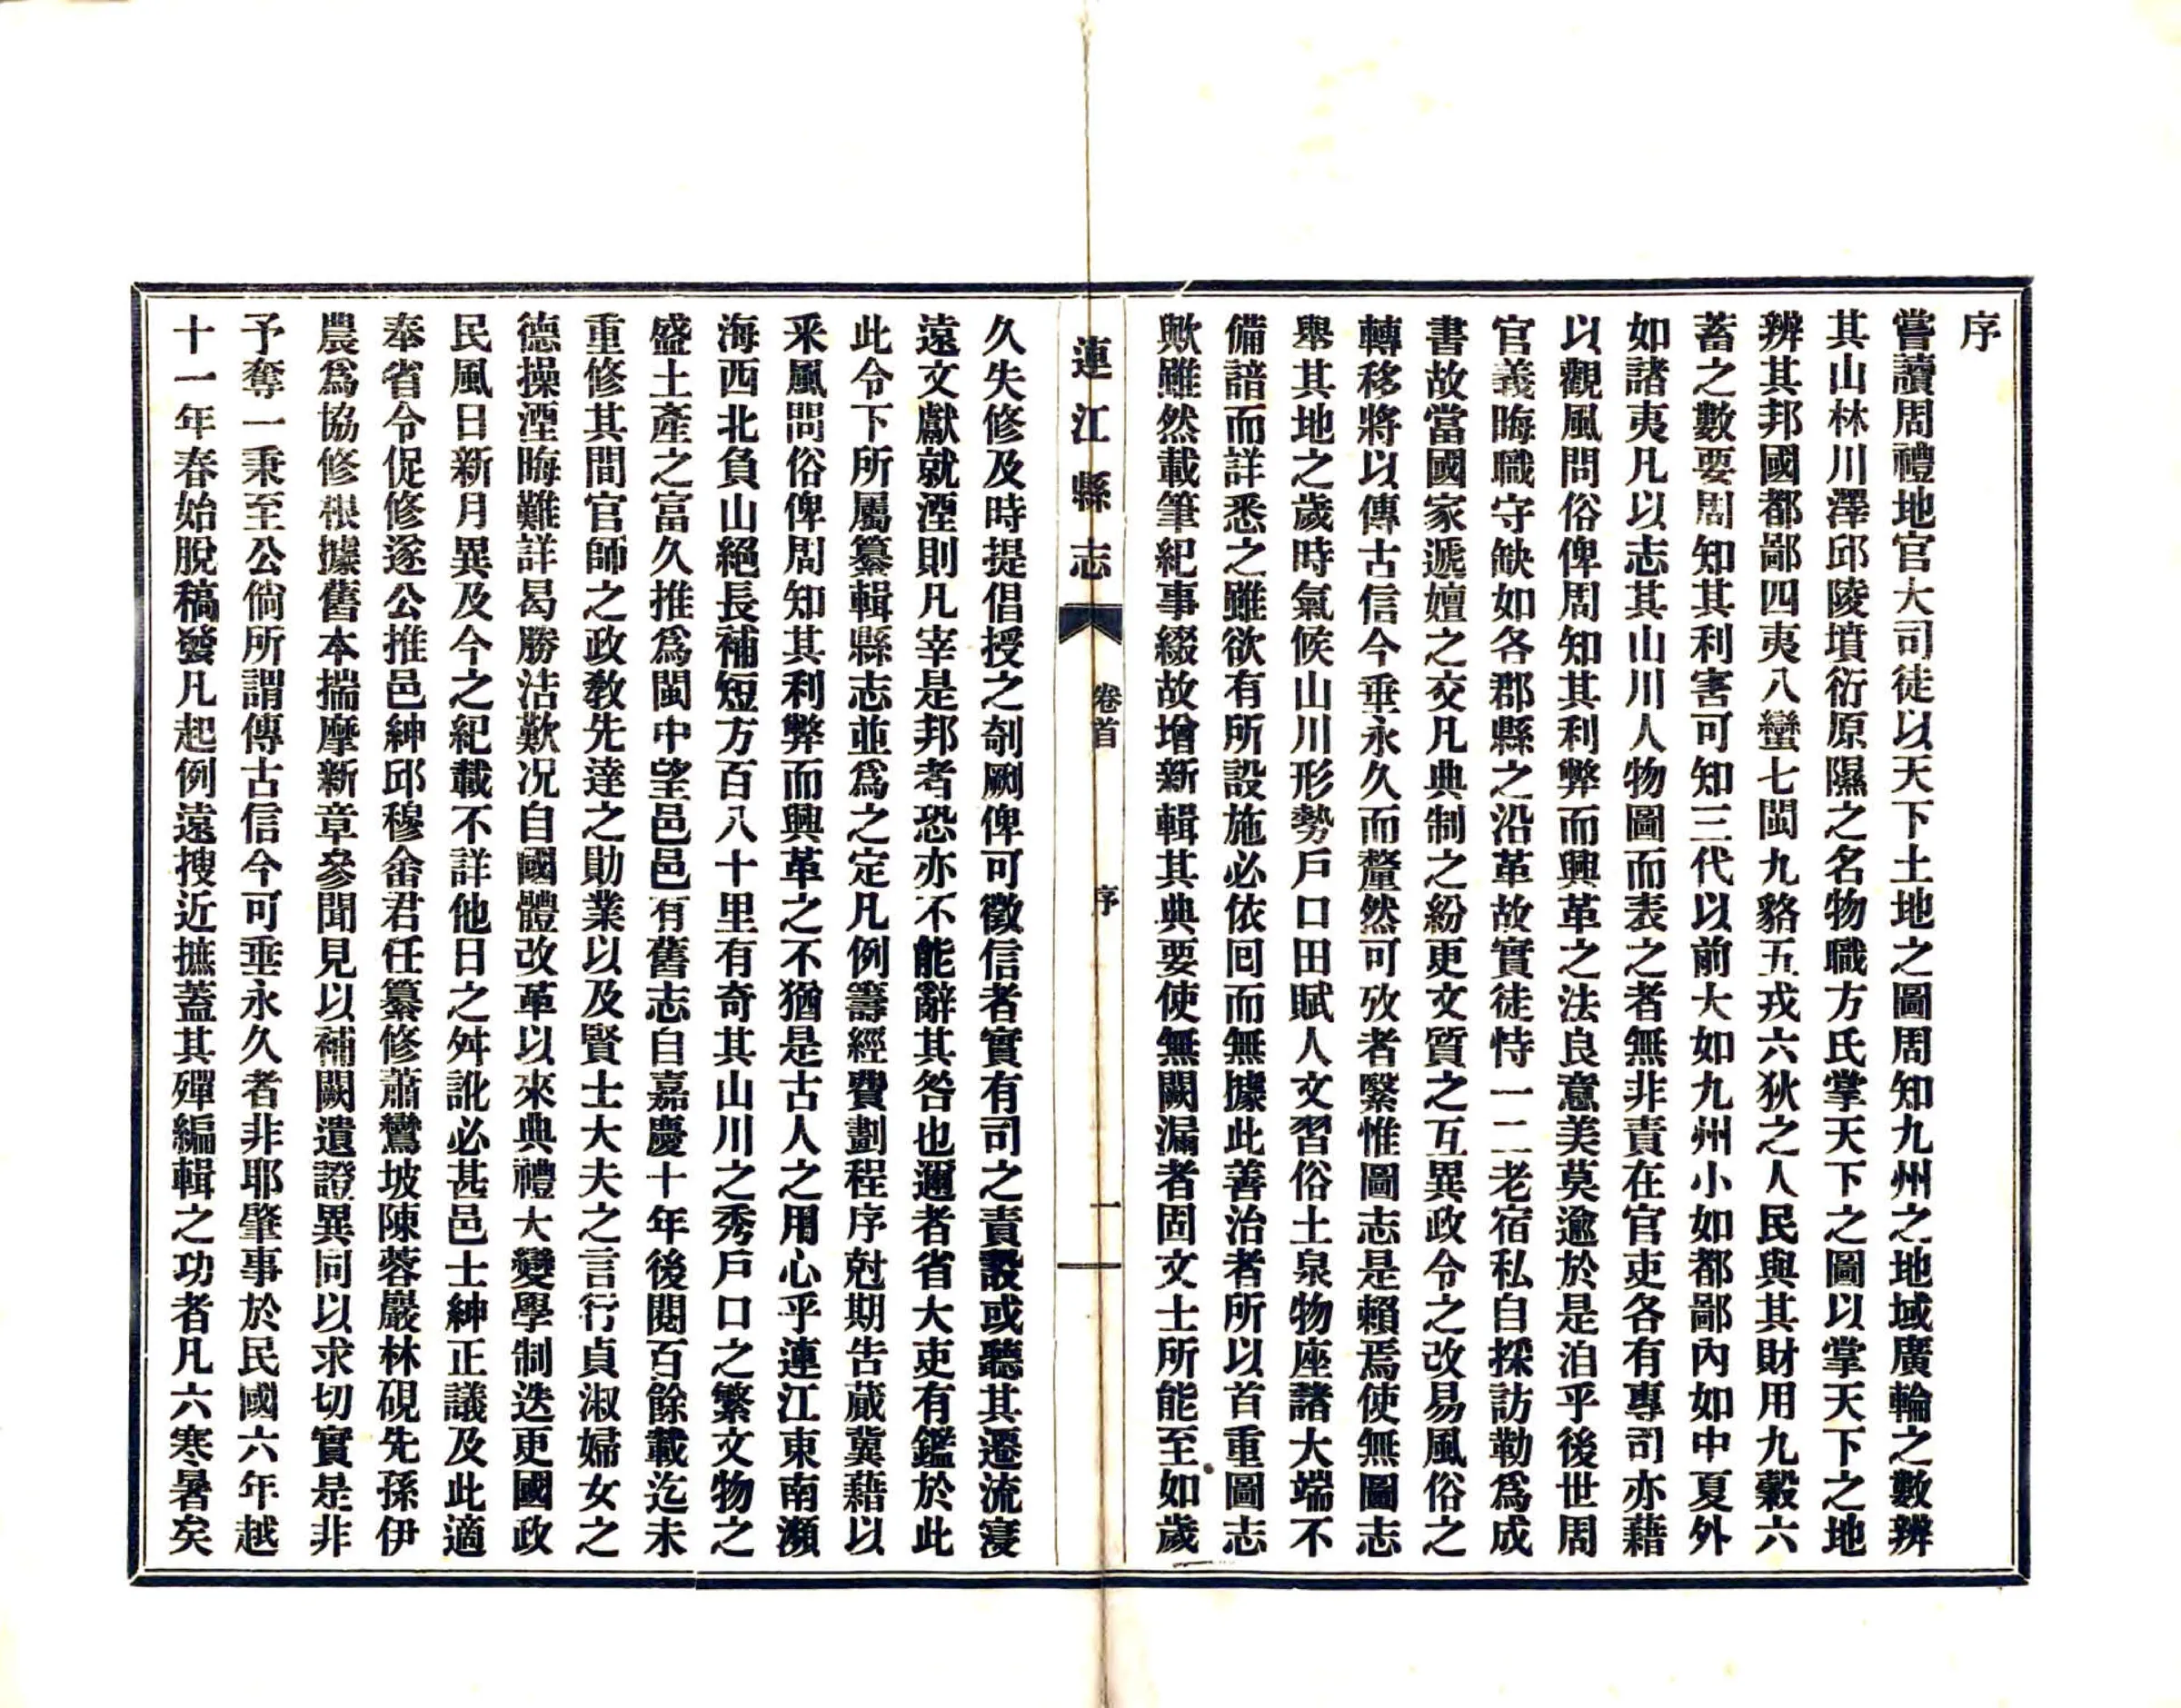 序
嘗讀周禮地官大司徒以天下土地之圖周知九州之地域廣輪之數辨
其山林川澤邱陵墳衍原隰之名物職方氏掌天下之圖以掌天下之地
辨其邦國都鄙四夷八蠻七閩九貉五戎六狄之人民與其財用九穀六
蓄之數要周知其利害可知三代以前大如九州小如都鄙內如中夏外
如諸夷凡以志其山川人物圖而表之者無非責在官吏各有專司亦藉
以觀風問俗俾周知其利弊而興革之法良意美莫逾於是洎乎後世周
官義晦職守缺如各郡縣之沿革故實徒恃一二老宿私自採訪勒爲成
書故當國家遞嬗之交凡典制之紛更文質之互異政令之改易風俗之
轉移將以傳古信今垂永久而釐然可攷者緊惟圖志是賴焉使無圖志
舉其地之歲時氣候山川形勢戶口田賦人文習俗土泉物座諸大端不
備諳而詳悉之雖欲有所設施必依回而無據此善治者所以首重圖志
歟雖然載筆紀事綴故增新輯其典要使無闕漏者固文士所能至如歲
連江縣志 卷首 序 一
久失修及時提倡授之剞劂俾可徵信者實有司之責設或聽其遷流寖
遠文獻就湮則凡宰是邦者恐亦不能辭其咎也邇者省大吏有鑑於此
此令下所屬纂輯縣志並爲之定凡例籌經費劃程序尅期告蕆冀藉以
釆風問俗俾周知其利弊而興革之不猶是古人之用心乎連江東南瀕
海西北負山絕長補短方百八十里有奇其山川之秀戶口之繁文物之
盛土產之富久推爲閩中望邑邑有舊志自嘉慶十年後閱百餘載迄未
重修其間官師之政教先達之勛業以及賢士大夫之言行貞淑婦女之
德操湮晦難詳曷勝沽歎况自國體改革以來典禮大變學制迭更國政
民風日新月異及今之紀載不詳他日之舛訛必甚邑士紳正議及此適
奉省令促修遂公推邑紳邱穆畬君任纂修蕭鸞坡陳蓉巖林硯先孫伊
農爲協修根據舊本揣摩新章參聞見以補闕遺證異同以求切實是非
予奪一秉至公倘所謂傳古信今可垂永久者非耶肇事於民國六年越
十一年春始脫稿發凡起例遠搜近摭蓋其殫編輯之功者凡六寒暑矣